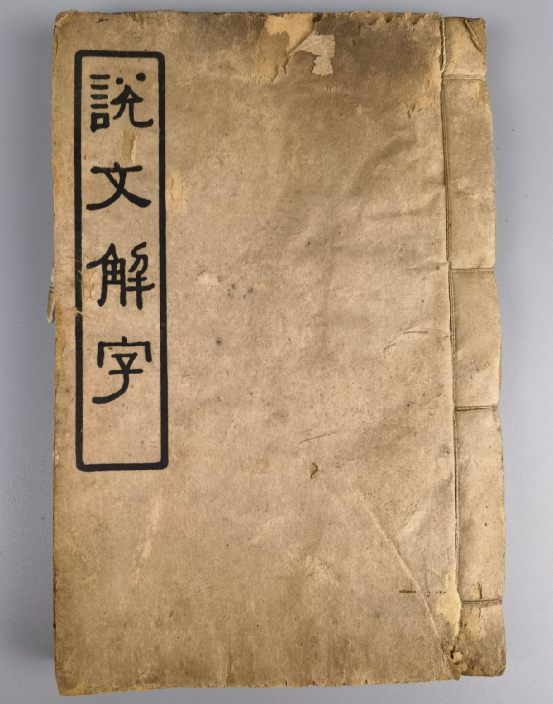 說文解字